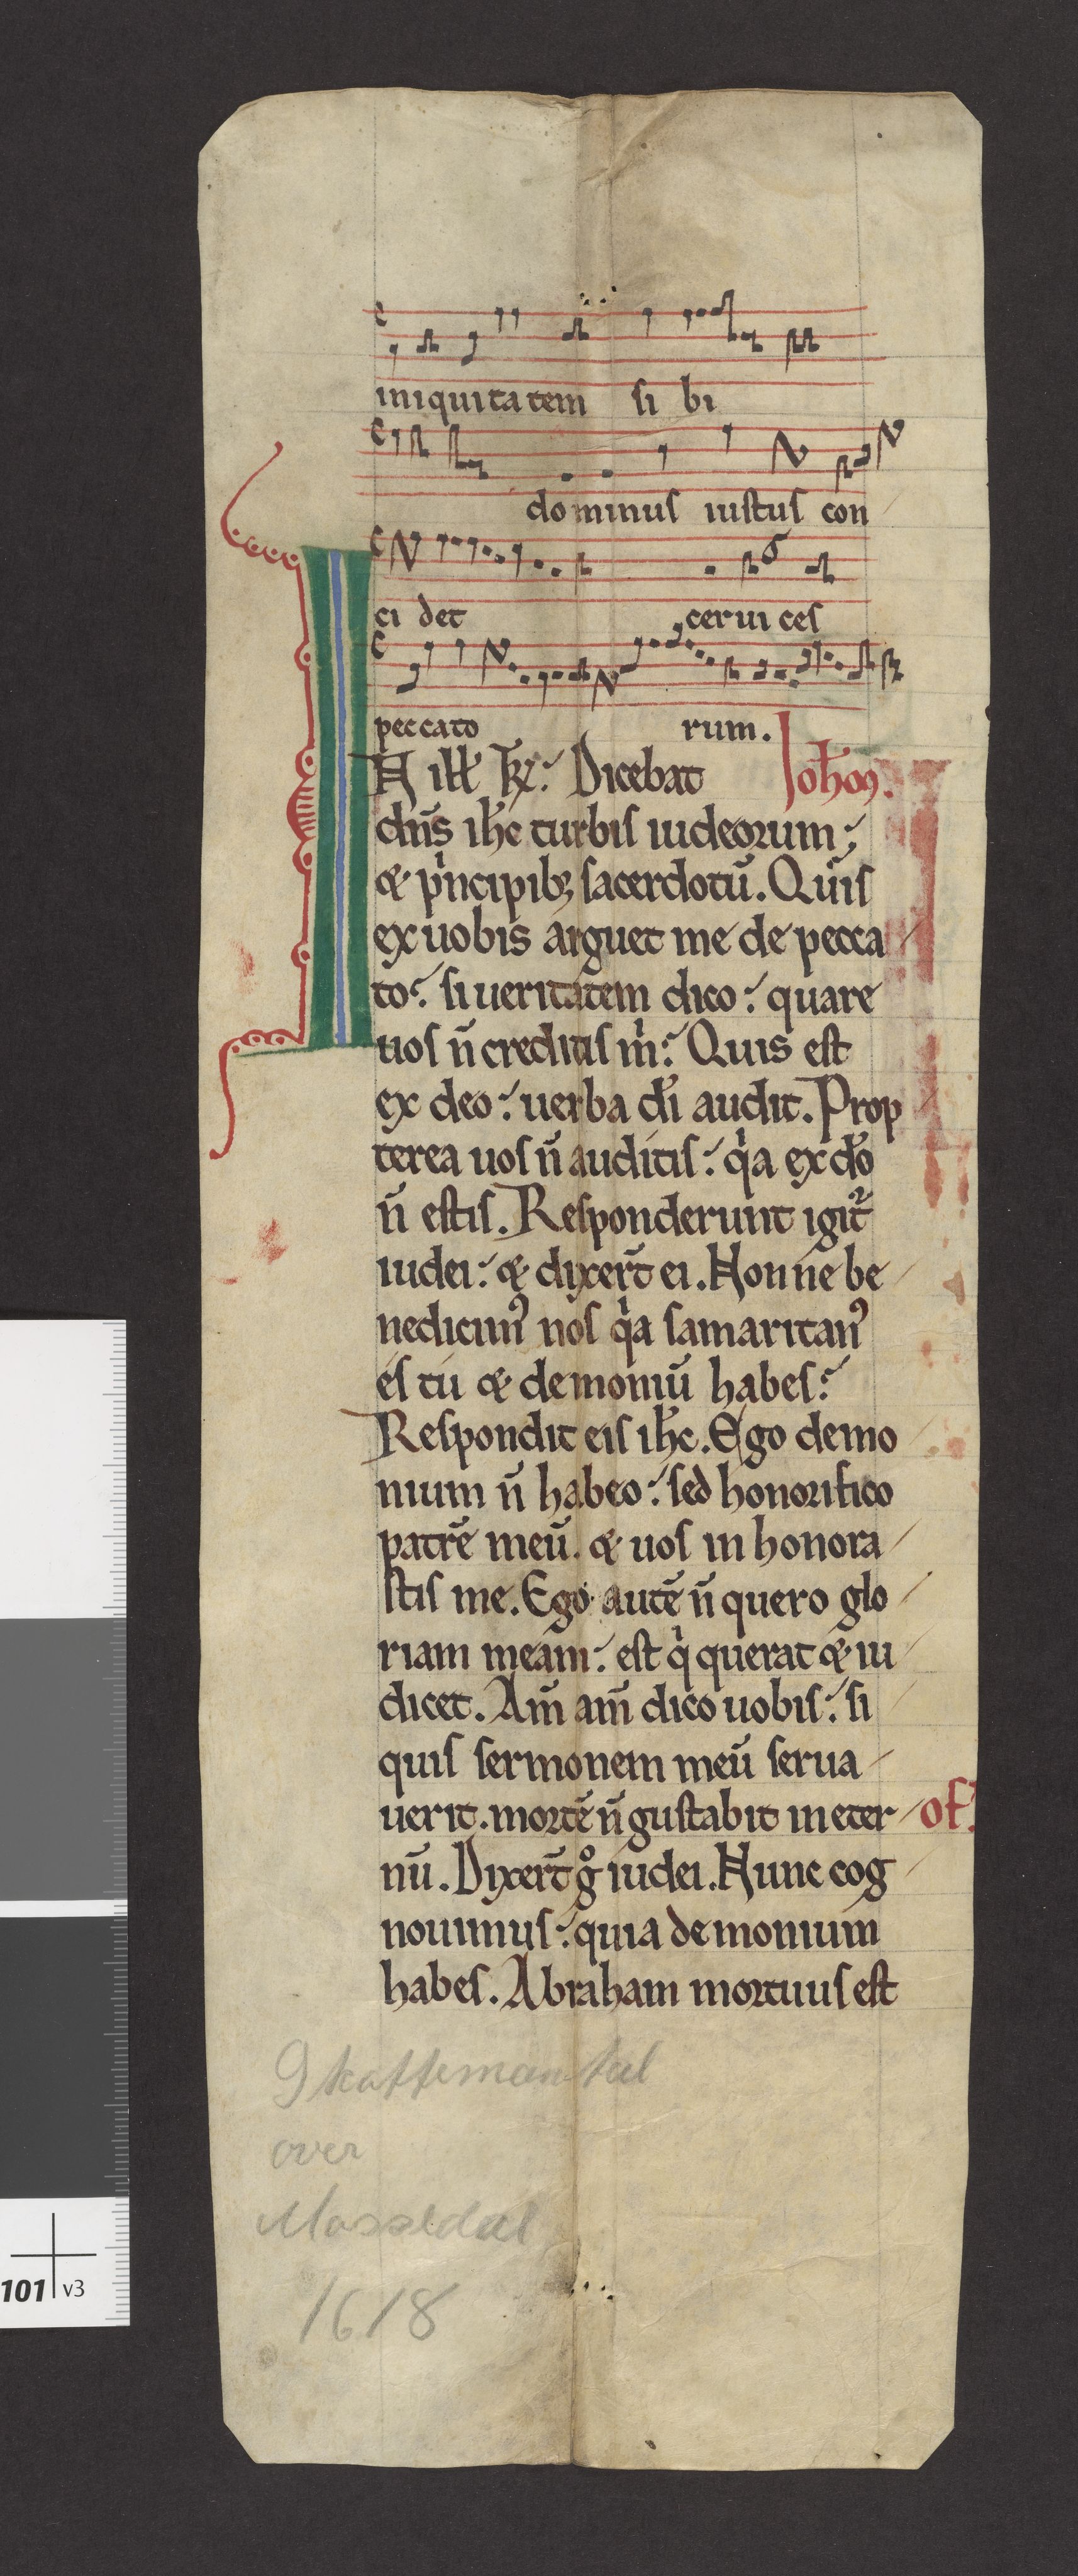 iniquitatem si bi
dominus iustus con
ci det ceruices
peccato rum.
IN ill' t̄. Dicebat Ioh'em.
dn̄s ih̄c turbis iudeorum;
& pⁱncipib; sacerdotū. Quis
ex uobis arguet me de pecca
to? si ueritatem dico: quare
uos n̄ creditis mⁱ? Quis est
ex deo: uerba dī audit. Prop
terea uos n̄ auditis: qⁱa ex dō
n̄ estis. Responderunt igit᷑
iudei: & dixer̄t ei. Nonne be
nedicimꝰ nos qⁱa samaritanꝰ
és tú & demoniū habes?
Respondit eis ih̄c. Ego demo
nium n̄ habeo: sed honorifico
patrē meū. & uos inhonora
stis me. Ego autē n̄ quero glo
riam meam: est qⁱ querat & iu
dicet. Am̄ am̄ dico uobis: si
quis sermonem meū serua
uerit. mortē n̄ gustabit in eter
of.
nū. Dixer̄t gͦ iudei. Nunc cog
nouimus: quia demonium
habes. Abraham mortuus est
Skattemantal
over
Mossedal
1618
101 v3